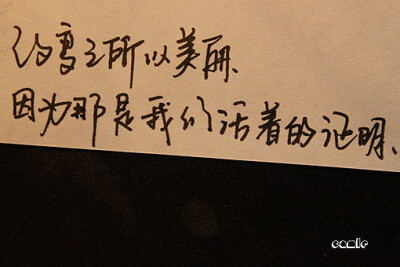 之所以美丽、
因为那是我们活着的证明、